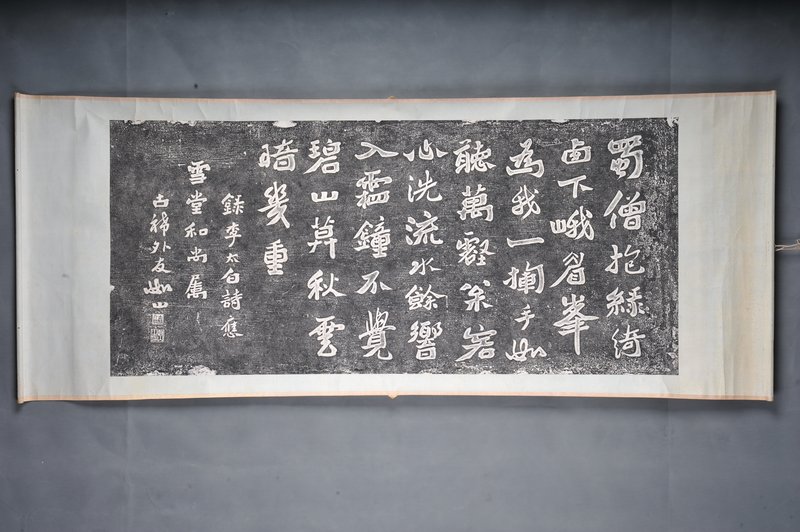 蜀僧抱綠綺
西下峨眉峯
為我一揮手如
聽萬壑枀客
心洗流水餘響
入霜鐘不覺
碧山暮秋雲
暗幾重
錄李太白詩應
雪堂和尚屬
古稀外友如山